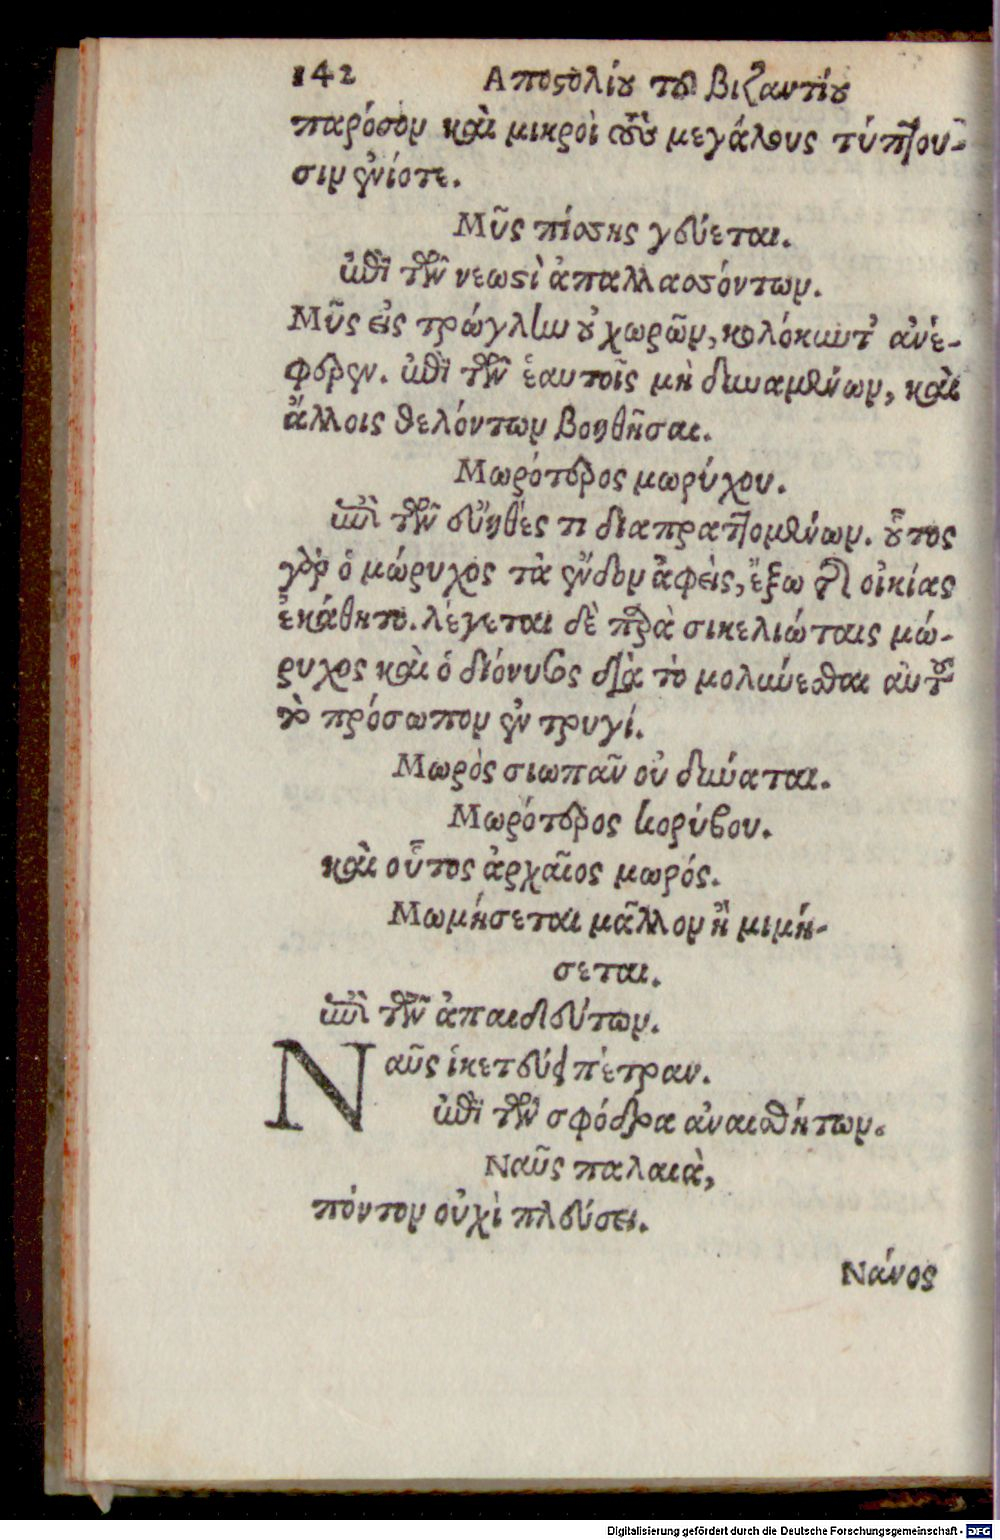 142 Αποστολίου τοῦ βιζαντίου
παρόσον καὶ μικροὶ τοὺς μεγάλους τύπτου-
σιν ἐνίοτε.
Μῦς πίσσης γεύεται.
ἐπὶ τῶν νεωστὶ ἀπαλλασσόντων.
Μῦς εἰς τρώγλην οὐ χωρῶν, κολόκυντ᾽ ἀνέ-
φερεν. ἐπὶ τῶν ἑαυτοῖς μὴ δυναμένων, καὶ
ἄλλοις θελόντων βοηθῆσαι.
Μωρότερος μωρύχου.
ἐπὶ τῶν εὔηθές τι διαπραττομένων. οὗτος
γὰρ ὁ μώρυχος τὰ ἔνδον ἀφεὶς, ἔξω τῆς οἰκίας
ἐκάθητο. λέγεται δὲ παρὰ σικελιώταις μώ-
ρυχος καὶ ὁ διόνυσος διὰ τὸ μολύνεσθαι αὐτοῦ
τὸ πρόσωπον ἐν τρυγί.
Μωρὸς σιωπᾶν οὐ δύναται.
Μωρότερος κορύβου.
καὶ οὗτος ἀρχαῖος μωρός.
Μωμήσεται μᾶλλον ἢ μιμή-
σεται.
ἐπὶ τῶν ἀπαιδεύτων.
Ναῦς ἱκετεύει πέτραν.
ἐπὶ τῶν σφόδρα ἀναισθήτων.
Ναῦς παλαιὰ,
πόντον οὐχὶ πλεύσει.
Νάνος
Digitalisierung gefördert durch die Deutsche Forschungsgemeinschaft - DFG